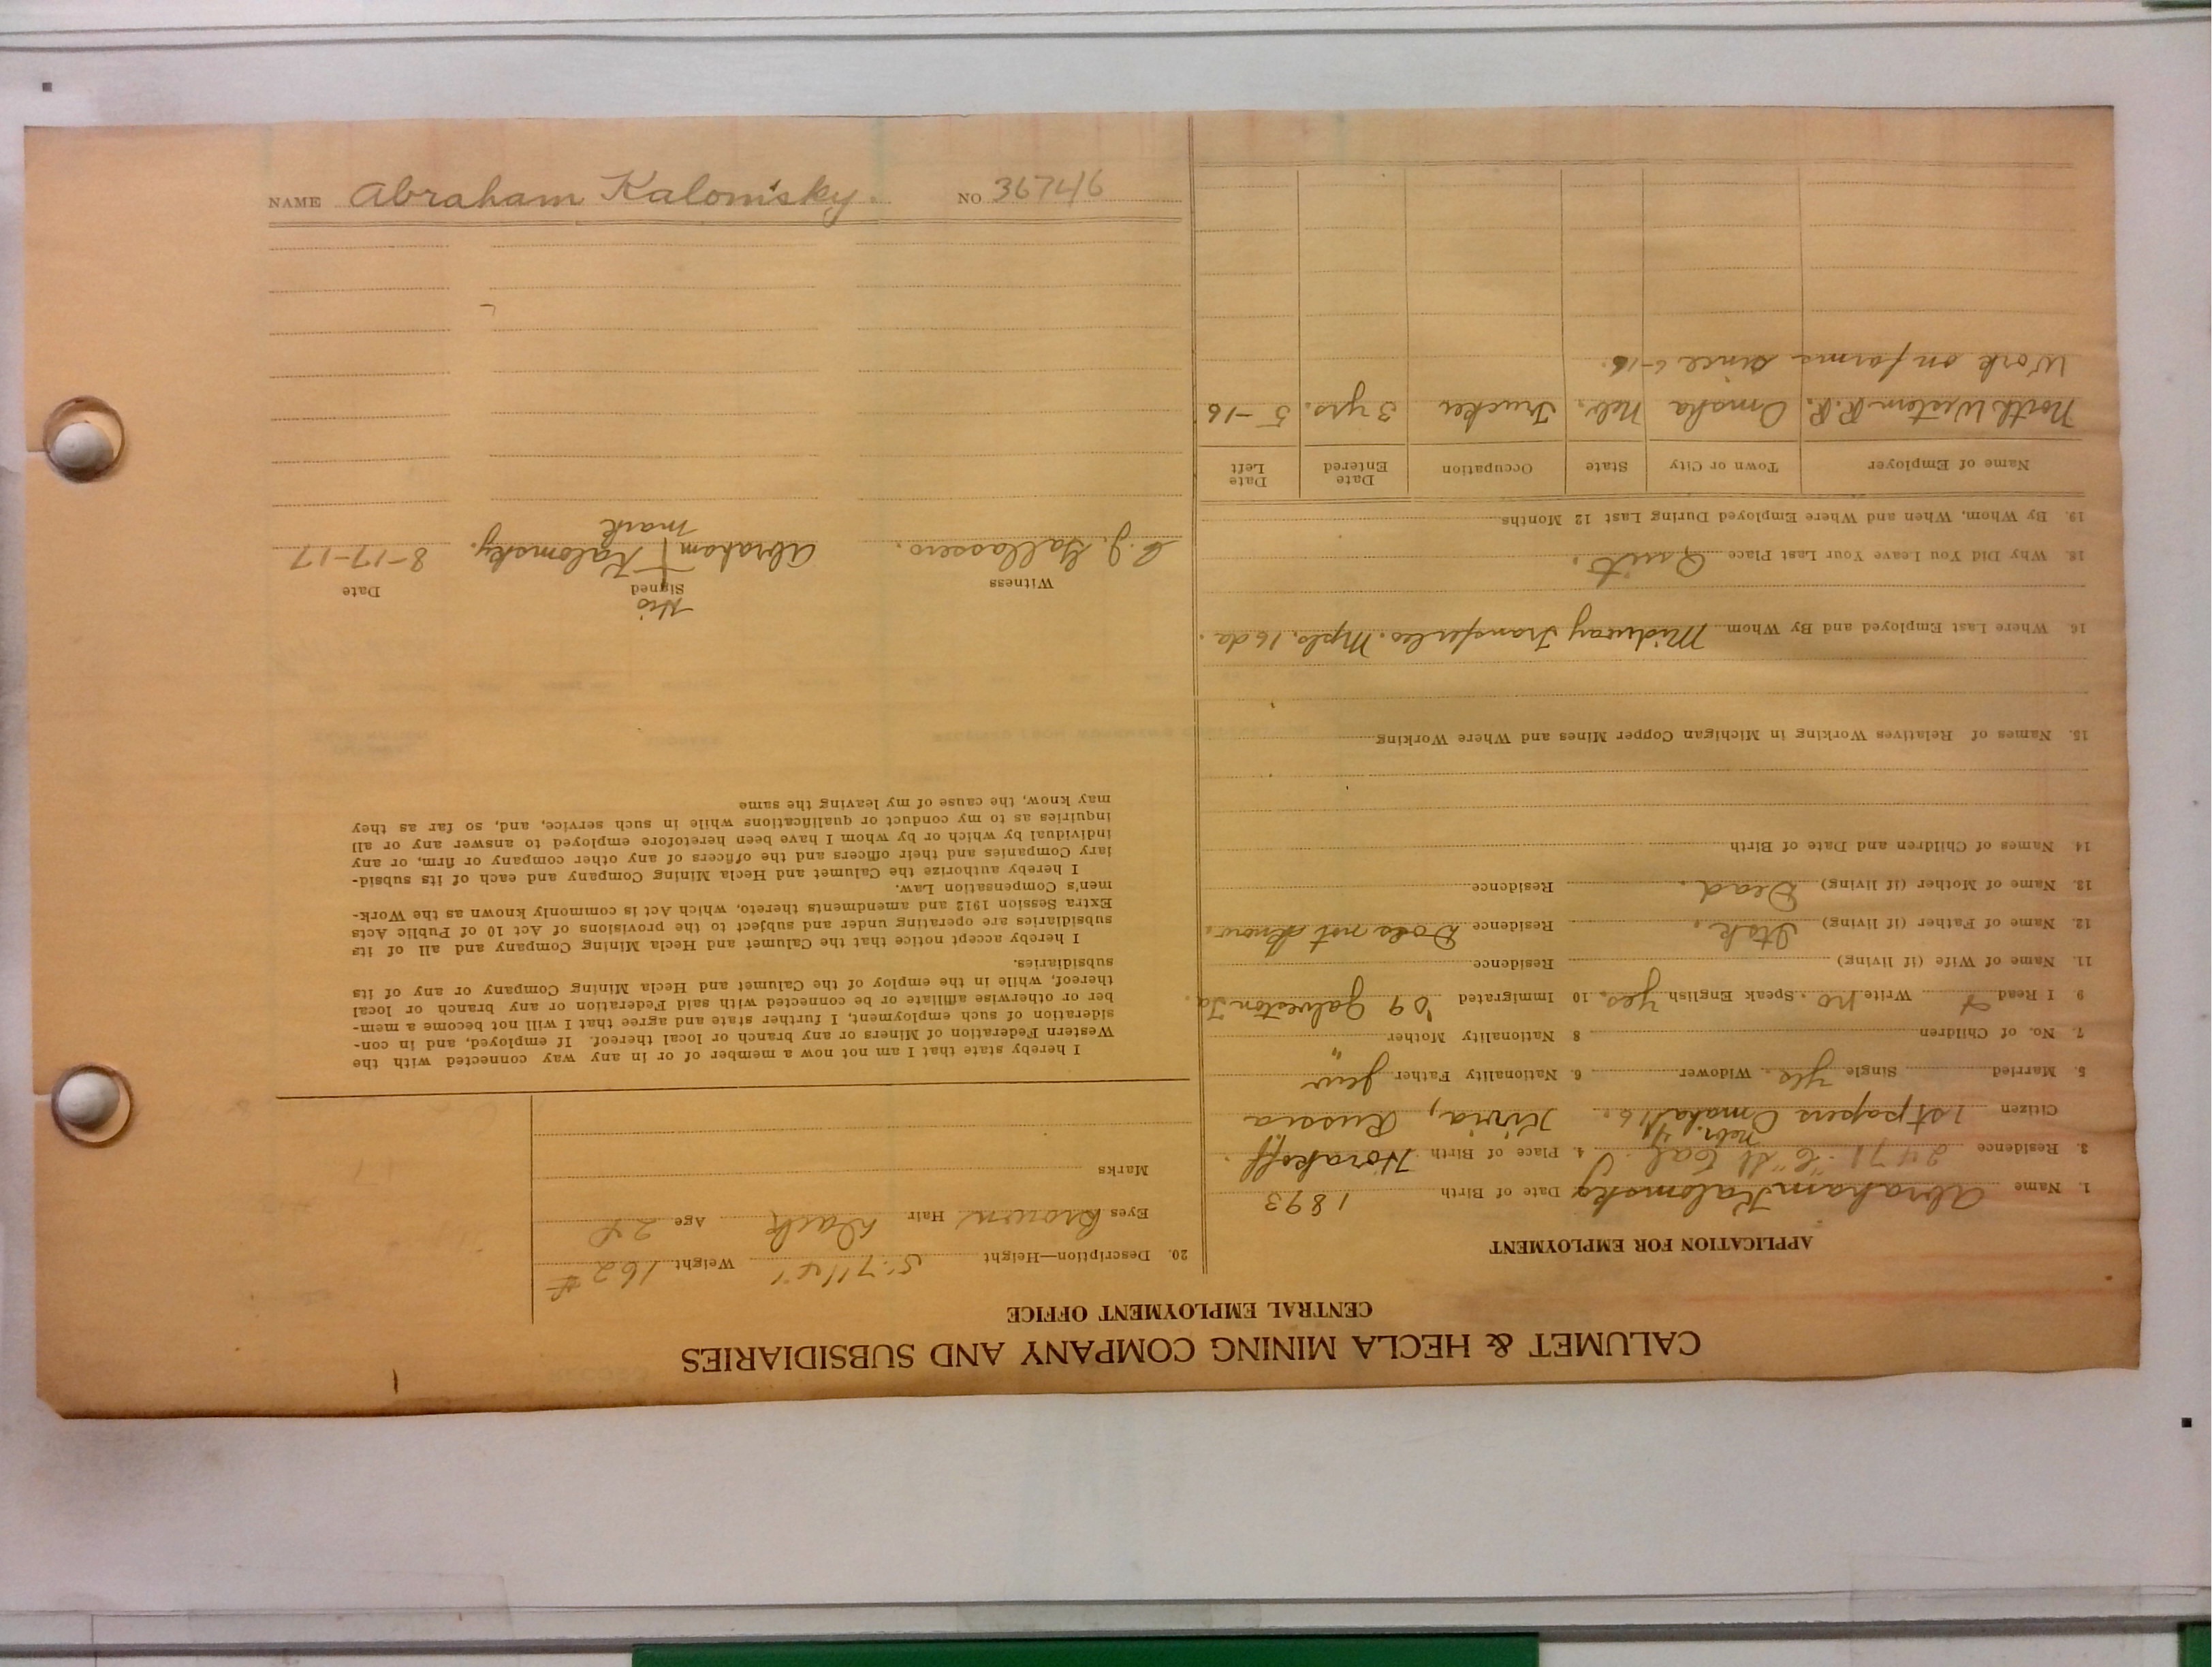 CALUMET & HECLA MINING COMPANY AND SUBSIDIARIES
CENTRAL EMPLOYMENT OFFICE
APPLICATION FOR EMPLOYMENT
1. Name Abraham Kalomsky Date of Birth 1893
3. Residence 2471 "C" St Cal. 4. Place of Birth Horakoff
Nebr.
Citizen 1st papers Omaha Russia
5. Married Single Yes. Widower 6. Nationality Father Jew
7. No. of Children 8 Nationality Mother "
9 I Read Write no. Speak English Yes. 10 Immigrated '09 Galveston
11. Name of Wife (if living) Residence
12. Name of Father (if living) Itsk. Residence Does not know.
13. Name of Mother (if living) Dead. Residence
14 Names of Children and Date of Birth
15. Names of Relatives Working in Michigan Copper Mines and Where Working
16. Where Last Employed and By Whom Midway Transfer Co. Mpls. 16 da.
18. Why Did You Leave Your Last Place Quit.
19. By Whom, When and Where Employed During Last 12 Months
Name of Employer Town or City State Occupation Date Entered Date Left
North Western R.R. Omaha Nebr. Trucker 3 yrs. 5-16
Work on farms since 6-16.
20. Description—Height 5:7 Weight 162 #
Eyes Brown Hair Dark Age
Marks
I hereby state that I am not now a member of or in any way connected with the
Western Federation of Miners or any branch or local thereof. If employed, and in con-
sideration of such employment, I further state and agree that I will not become a mem-
ber or otherwise affiliate or be connected with said Federation or any branch or local
thereof, while in the employ of the Calumet and Hecla Mining Company or any of its
subsidiaries.
I hereby accept notice that the Calumet and Hecla Mining Company and all of its
subsidiaries are operating under and subject to the provisions of Act 10 of Public Acts
Extra Session 1912 and amendments thereto, which Act is commonly known as the Work-
men's Compensation Law.
I hereby authorize the Calumet and Hecla Mining Company and each of its subsid-
iary Companies and their officers and the officers of any other company or firm, or any
individual by which or by whom I have been heretofore employed to answer any or all
inquiries as to my conduct or qualifications while in such service, and, so far as they
may know, the cause of my leaving the same
Witness Signed Date
His
Abraham + Kalomsky. 8-17-17
mark
NAME Abraham Kalomsky. NO 36746